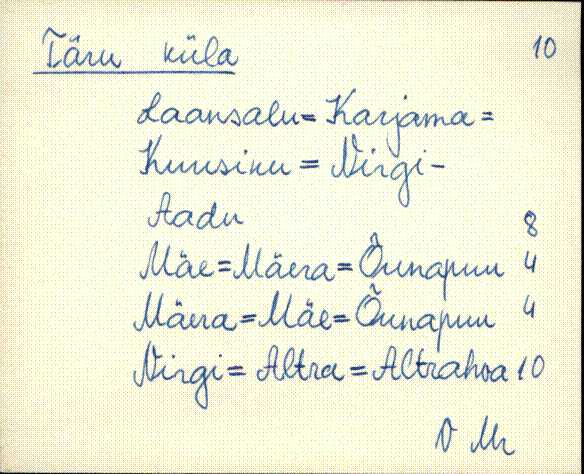 Täru küla 10
Laansalu = Karjama =
Kuusiku = Nirgi-
Aadu 8
Mäe = Mäera = Õunapuu 4
Mäera = Mäe = Õunapuu 4
Nirgi = Altra = Altrahoa 10